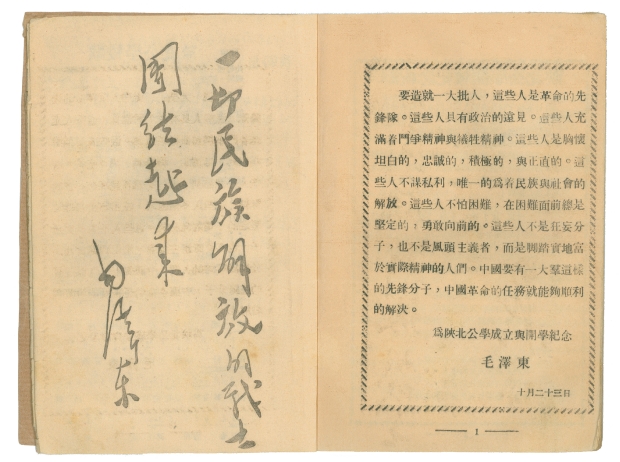 一切民族解放的战士
团结起来
毛泽东
要造就一大批人，這些人是革命的先
鋒隊。這些人具有政治的遠見。這些人充
滿着鬥爭精神與犧牲精神。這些人是胸懷
坦白的，忠誠的，積極的，與正直的。這
些人不謀私利，唯一的爲着民族與社會的
解放。這些人不怕困難，在困難面前總是
堅定的，勇敢向前的。這些人不是狂妄分
子，也不是風頭主義者，而是脚踏實地富
於實際精神的人們。中國要有一大羣這樣
的先鋒分子，中國革命的任務就能夠順利
的解決。
爲陝北公學成立與開學紀念
毛澤東
十月二十三日
1